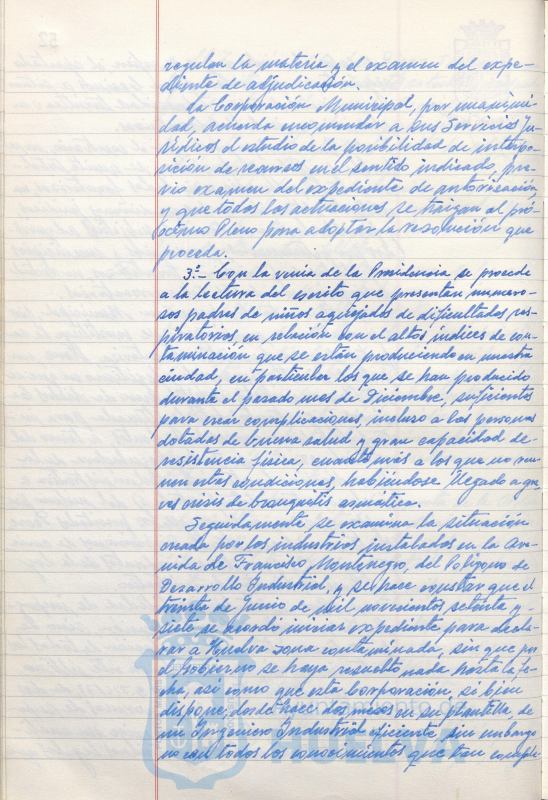 regulan la materia y el examen del expe-
diente de adjudicación.
La Corporación Municipal, por unanimi-
dad, acuerda encomendar a sus Servicios Ju-
rídicos el estudio de la posibilidad de interpo-
sición de recursos en el sentido indicado, pre-
vio examen del expediente de autorización
y que todas las actuaciones se traigan al pró-
ximo Pleno para adoptar la resolución que
proceda.
3º.- Con la venia de la Presidencia se procede
a la lectura del escrito que presentan numero-
sos padres de niños aquejados de dificultades res-
piratorias, en relación con el altos índices de con-
taminación que se están produciendo en nuestra
ciudad, en particular los que se han producido
durante el pasado mes de Diciembre, suficientes
para crear complicaciones, incluso a las personas
dotadas de buena salud y gran capacidad de
resistencia física, cuanto más a los que no reu-
nen estas condiciones, habiéndose llegado a gra-
ves crisis de bronquitis asmática.
Seguidamente se examina la situación
creada por las industrias instaladas en la Ave-
nida de Francisco Montenegro, del Polígono de
Desarrollo Industrial, y se hace constar que el
treinta de Junio de mil novecientos setenta y
siete se acordó iniciar expediente para decla-
rar a Huelva zona contaminada, sin que por
el Gobierno se haya resuelto nada hasta la fe-
cha, así como que esta Corporación, si bien
dispone desde hace dos meses en su plantilla de
un Ingeniero Industrial eficiente, sin embargo
no con todos los conocimientos que tan comple-